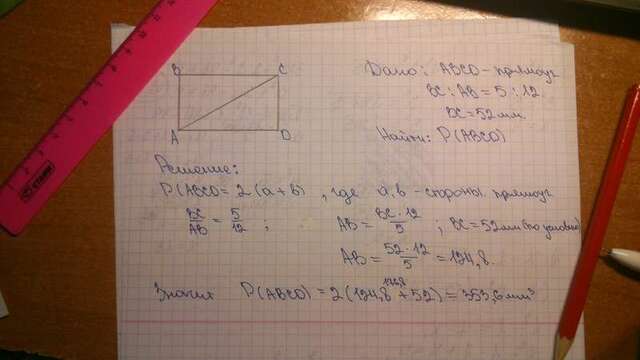 B C
A D
Дано: ABCD - прямоуг
BC : AB = 5 : 12.
BC = 52 мм.
Найти: P(ABCD)
Решение:
P(ABCD = 2(a+b) , где a,b - стороны прямоуг
BC/AB = 5/12 ; AB = BC·12/5 ; BC = 52 мм (по условию)
AB = 52·12/5 = 124,8.
Значит P(ABCD) = 2(124,8 + 52) = 353,6 мм³